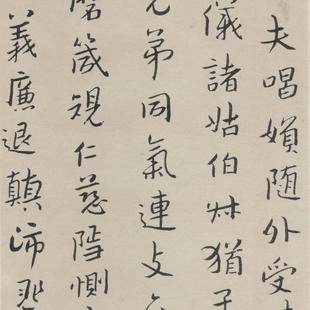 夫唱婦隨外受
儀諸姑伯叔猶子
兄弟同氣連支
磨箴規仁慈隱惻
義廉退顛沛匪